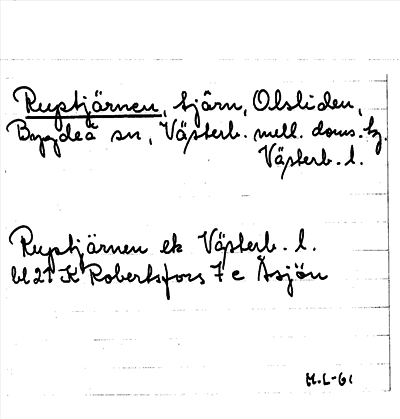 Ruptjärnen, tjärn, Olsliden,
Bygdeå sn, Västerb. mell. doms. tg.
Västerb. l.
Ruptjärnen ek Västerb. l.
bl 21 K Robertsfors 7 e Åsjön
M.L-61